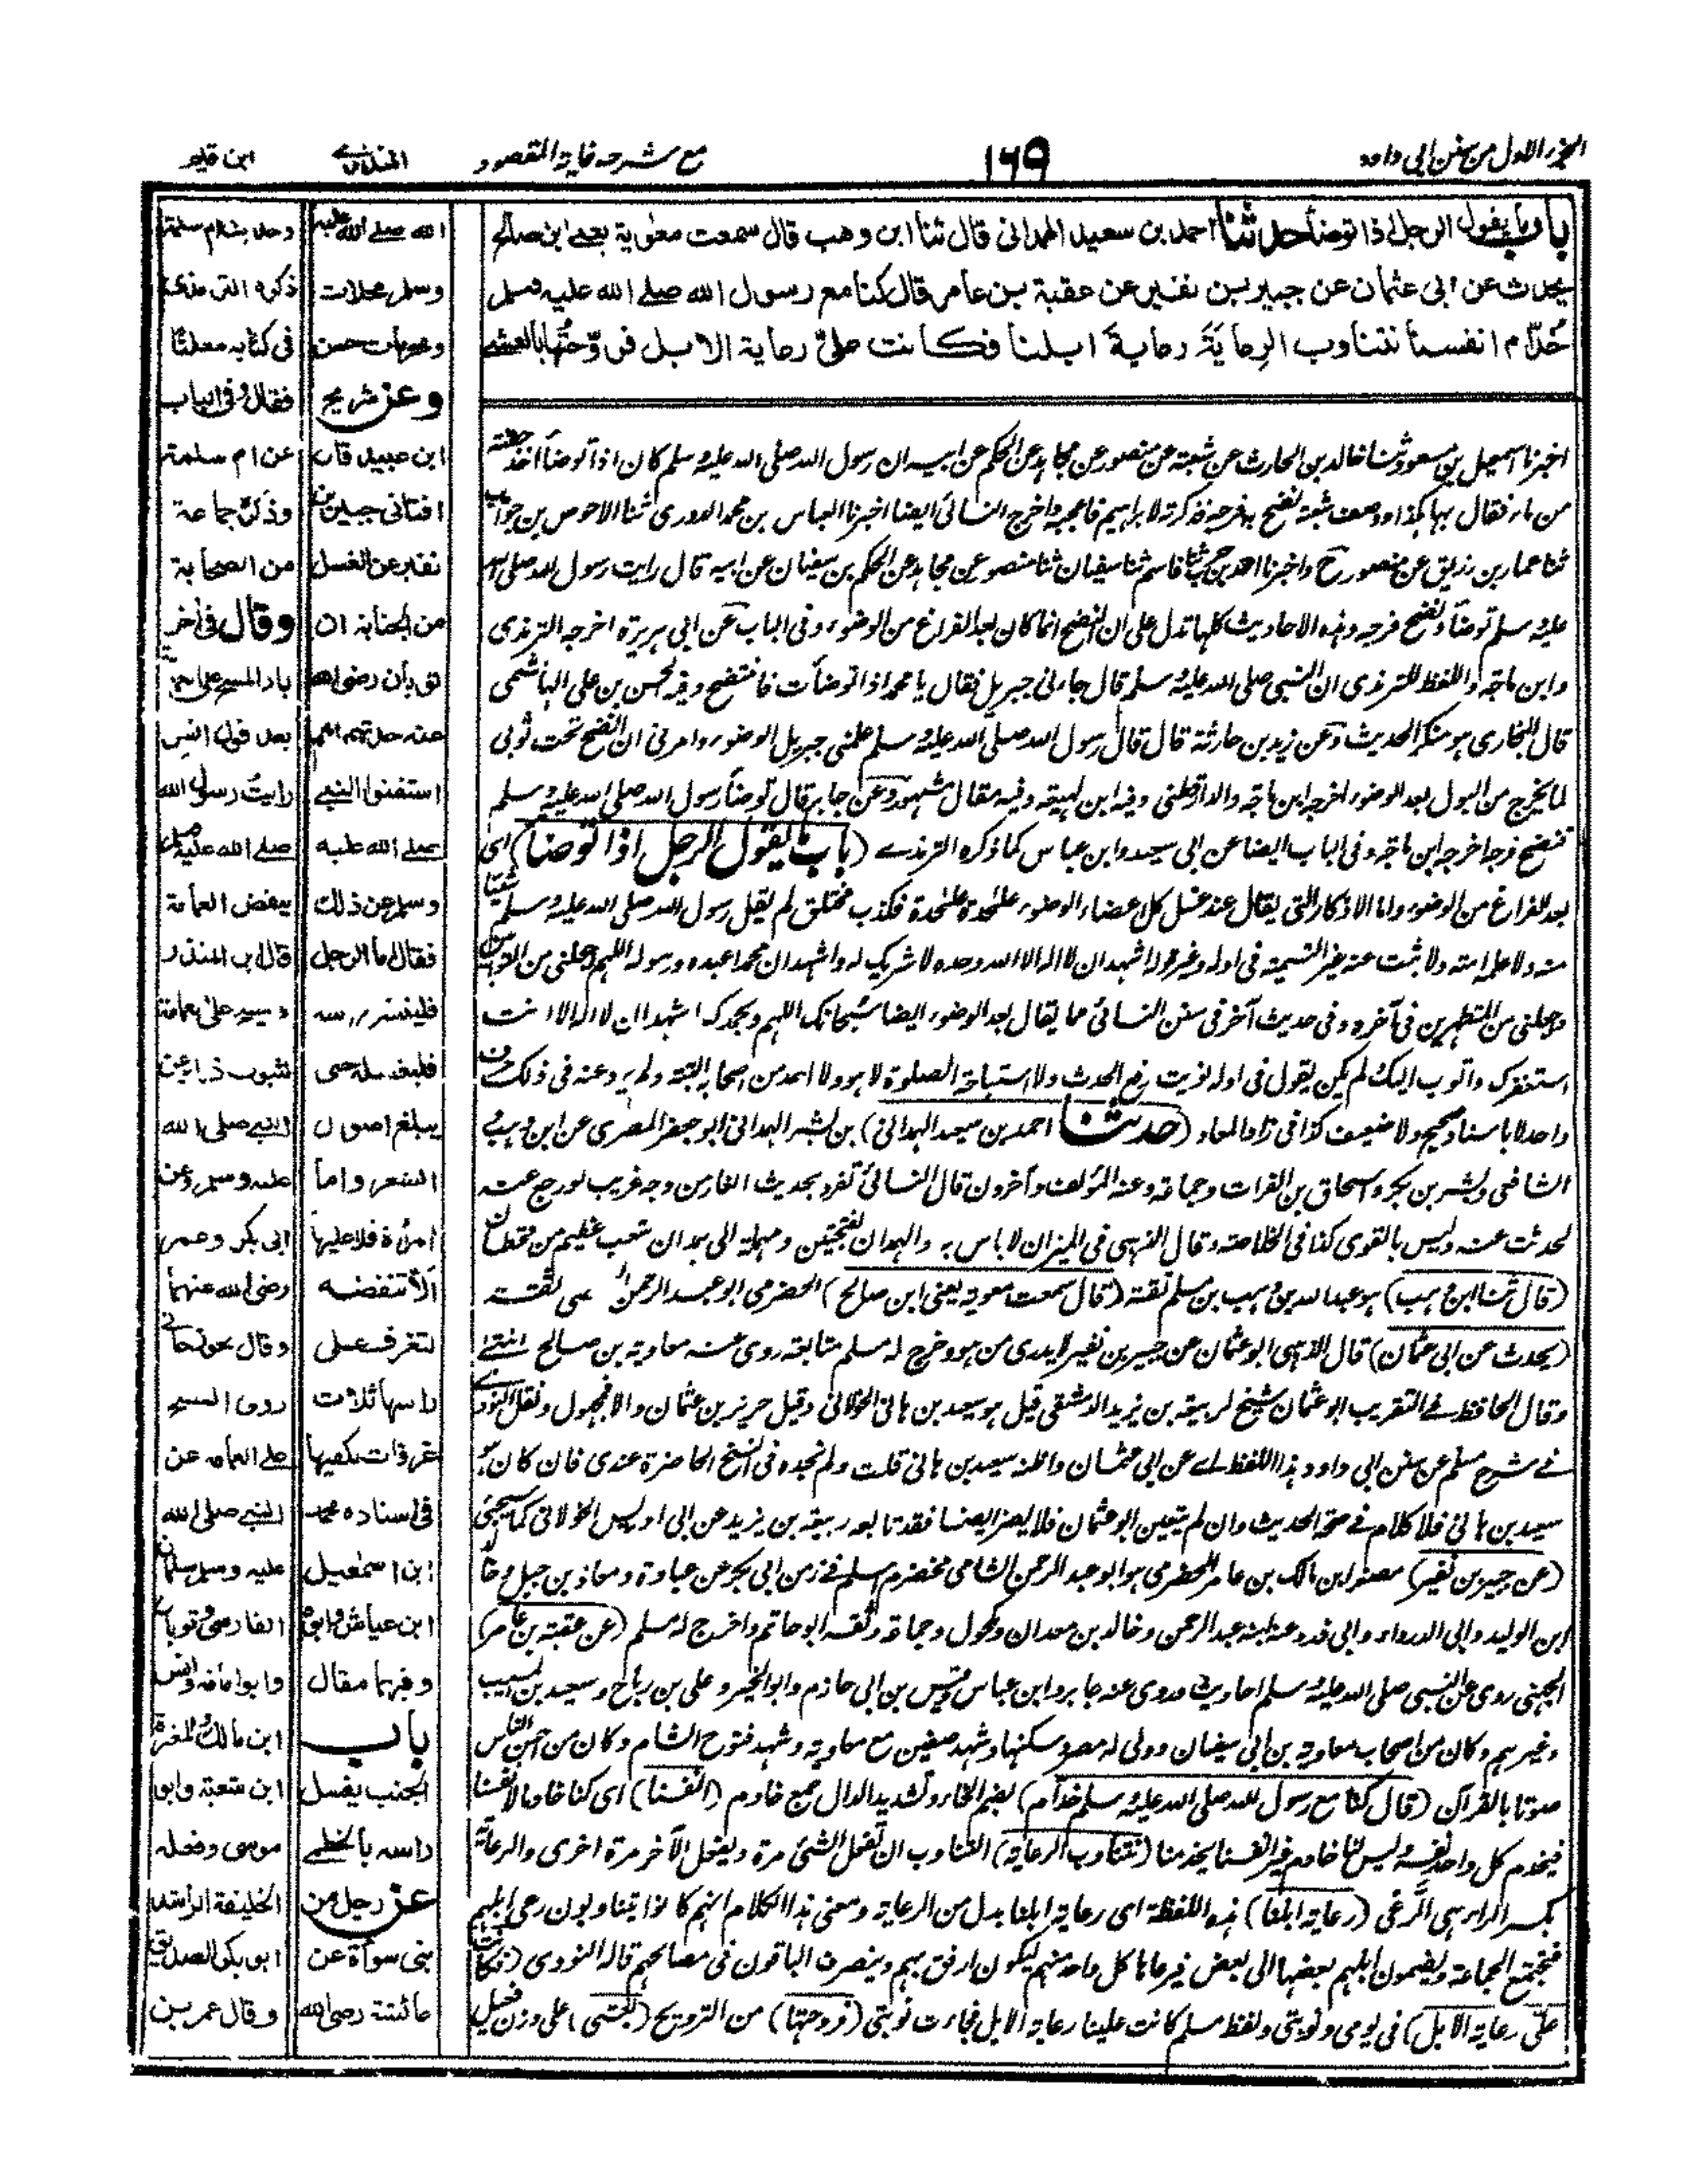 الجزء الاول من سنن ابى داود
١٦٩
مع شرحه غاية المقصود
المنذرى
ابن قيم
باب ما يقول الرجل اذا توضأ حدثنا احمد بن سعيد الهمدانى قال ثنا ابن وهب قال سمعت معٰوية يعنى ابن صالح
يحدث عن ابى عثمان عن جبير بن نفير عن عقبة بن عامر قال كنا مع رسول الله صلى الله عليه وسلم
خُدّام انفسنا نتناوب الرِعايةَ رعايةَ ابلنا فكانت علىَّ رعاية الابل فروّحتُها بالعشى
اخبرنا اسمعيل بن مسعود ثنا خالد بن الحارث عن شعبة عن منصور عن مجاهد عن الحكم عن ابيه ان رسول الله صلى الله عليه وسلم كان اذا توضأ اخذ حفنة
من ماء فقال بها هكذا ووصف شعبة نضح به فرجه فذكرته لابراهيم فاعجبه واخرج النسائى ايضا اخبرنا العباس بن محمد الدورى ثنا الاحوص بن جواب
ثنا عمار بن رزيق عن منصور ح واخبرنا احمد بن حرب ثنا قاسم ثنا سفيان ثنا منصور عن مجاهد عن الحكم بن سفيان عن ابيه قال رايت رسول الله صلى الله
عليه وسلم توضأ ونضح فرجه وهذه الاحاديث كلها تدل على ان النضح انما كان بعد الفراغ من الوضوء وفى الباب عن ابى هريرة اخرجه الترمذى
وابن ماجة واللفظ للترمذى ان النبى صلى الله عليه وسلم قال جاءنى جبريل فقال يا محمد اذا توضأت فانتضح وفيه الحسن بن على الهاشمى
قال البخارى هو منكر الحديث وعن زيد بن حارثة قال قال رسول الله صلى الله عليه وسلم علمنى جبريل الوضوء وامرنى ان انضح تحت ثوبى
لما يخرج من البول بعد الوضوء اخرجه ابن ماجة والدارقطنى وفيه ابن لهيعة وفيه مقال مشهور وعن جابر قال توضأ رسول الله صلى الله عليه وسلم
فنضح فرجه اخرجه ابن ماجة وفى الباب ايضا عن ابى سعيد وابن عباس كما ذكره الترمذى (باب ما يقول الرجل اذا توضأ) اى
بعد الفراغ من الوضوء واما الاذكار التى يقال عند غسل كل اعضاء الوضوء علٰحدة علٰحدة فكذب مختلق لم يقل رسول الله صلى الله عليه وسلم شيئا
منه ولا علم امته ولا ثبت عنه غير التسمية فى اوله وغير قوله اشهد ان لا اله الا الله وحده لا شريك له واشهد ان محمدا عبده ورسوله اللهم اجعلنى من التوابين
واجعلنى من المتطهرين فى آخره وفى حديث آخر فى سنن النسائى مما يقال بعد الوضوء ايضا سبحانك اللهم وبحمدك اشهد ان لا اله الا انت
استغفرك واتوب اليك لم يكن يقول فى اوله نويت رفع الحدث ولا استباحة الصلوة لا هو ولا احد من اصحابه البتة ولم يرو عنه فى ذلك حرف
واحد لا باسناد صحيح ولا ضعيف كذا فى زاد المعاد (حدثنا احمد بن سعيد الهمدانى) بن بشر الهمدانى ابو جعفر المصرى عن ابن وهب
الشافعى وبشر بن بكر واسحاق بن الفرات وجماعة وعنه المؤلف وآخرون قال النسائى تفرد بحديث الغار من وجه غريب لو رجع عنه
لحدثت عنه وليس بالقوى كذا فى الخلاصة وقال الذهبى فى الميزان لا باس به والهمدان بفتحتين ومهملة الى همدان شعب عظيم من قحطان
(قال ثنا ابن وهب) هو عبد الله بن وهب بن مسلم ثقة (قال سمعت معوية يعنى ابن صالح) الحضرمى ابو عبد الرحمن ثقة
(يحدث عن ابى عثمان) قال الذهبى ابو عثمان عن جبير بن نفير لا يدرى من هو وخرج له مسلم متابعة روى عنه معاوية بن صالح انتهى
وقال الحافظ فى التقريب ابو عثمان شيخ لربيعة بن يزيد الدمشقى قيل هو سعيد بن هانى الخولانى وقيل حريز بن عثمان والا فمجهول ونقل النووى
فى شرح مسلم عن سنن ابى داود هذا اللفظ اى عن ابى عثمان واظنه سعيد بن هانى قلت ولم نجده فى النسخ الحاضرة عندى فان كان هو
سعيد بن هانى فلا كلام فى صحة الحديث وان لم يتعين ابو عثمان فلا يضر ايضا فقد تابعه ربيعة بن يزيد عن ابى ادريس الخولانى كما سيجئ
(عن جبير بن نفير) مصغرا ابن مالك بن عامر الحضرمى هو ابو عبد الرحمن الشامى مخضرم اسلم فى زمن ابى بكر عن عبادة ومعاذ بن جبل وخالد
ابن الوليد وابى الدرداء وابى ذر وعنه ابنه عبد الرحمن وخالد بن معدان ومكحول وجماعة وثقه ابو حاتم واخرج له مسلم (عن عقبة بن عامر)
الجهنى روى عن النبى صلى الله عليه وسلم احاديث وروى عنه جابر وابن عباس وقيس بن ابى حازم وابو الخير وعلى بن رباح وسعيد بن المسيب
وغيرهم وكان من اصحاب معاوية بن ابى سفيان وولى له مصر وسكنها وشهد صفين مع معاوية وشهد فتوح الشام وكان من احسن الناس
صوتا بالقرآن (قال كنا مع رسول الله صلى الله عليه وسلم خدام) بضم الخاء وتشديد الدال جمع خادم (انفسنا) اى كنا خادما لانفسنا
فيخدم كل واحد نفسه وليس لنا خادم غير انفسنا يخدمنا (نتناوب الرعاية) التناوب ان تفعل الشئ مرة ويفعل الآخر مرة اخرى والرعاية
بكسر الراء هى الرَّعى (رعاية ابلنا) هذه اللفظة اى رعاية ابلنا بدل من الرعاية ومعنى هذا الكلام انهم كانوا يتناوبون رعى ابلهم
فتجتمع الجماعة ويضمون ابلهم بعضها الى بعض فيرعاها كل واحد منهم ليكون ارفق بهم وينصرف الباقون فى مصالحهم قاله النووى (فكانت
علىّ رعاية الابل) فى يومى ونوبتى ولفظ مسلم كانت علينا رعاية الابل فجاءت نوبتى (فروحتها) من الترويح (بالعشى) على وزن فعيل
الله صلى الله عليه
وسلم محلات
وعرهات حسن
وعن شريح
ابن عبيد قال
افتانى جبير بن
نفير عن الغسل
من الجنابة ان
ثوبان رضى الله
عنه حدثهم انهم
استفتوا النبى
صلى الله عليه
وسلم عن ذلك
فقال اما الرجل
فلينشر راسه
فليغسله حتى
يبلغ اصول
الشعر واما
المرأة فلا عليها
ألّا تنقضه
لتغرف على
راسها ثلاث
غرفات بكفيها
فى اسناده محمد
ابن اسمٰعيل
ابن عياش وابوه
وفيهما مقال
باب
الجنب يغسل
راسه بالخطمى
عن رجل من
بنى سوأة عن
عائشة رضى الله
وحديث ام سلمة
ذكره الترمذى
فى كتابه معلقا
فقال وفى الباب
عن ام سلمة
وذكر جماعة
من الصحابة
وقال فى آخر
باب المسح على
بعد قول انس
رايت رسول الله
صلى الله عليه وسلم
ببعض العامة
قال ابن المنذر
ومسح على العمامة
لثبوت ذلك عن
النبى صلى الله
عليه وسلم وعن
ابى بكر وعمر
رضى الله عنهما
وقال
روى المسح
على العمامة عن
النبى صلى الله
عليه وسلم سلمان
الفارسى وثوبان
وابو امامة وانس
ابن مالك والمغيرة
ابن شعبة وابو
موسى وفعله
الخليفة الراشد
ابو بكر الصديق
وقال عمر بن